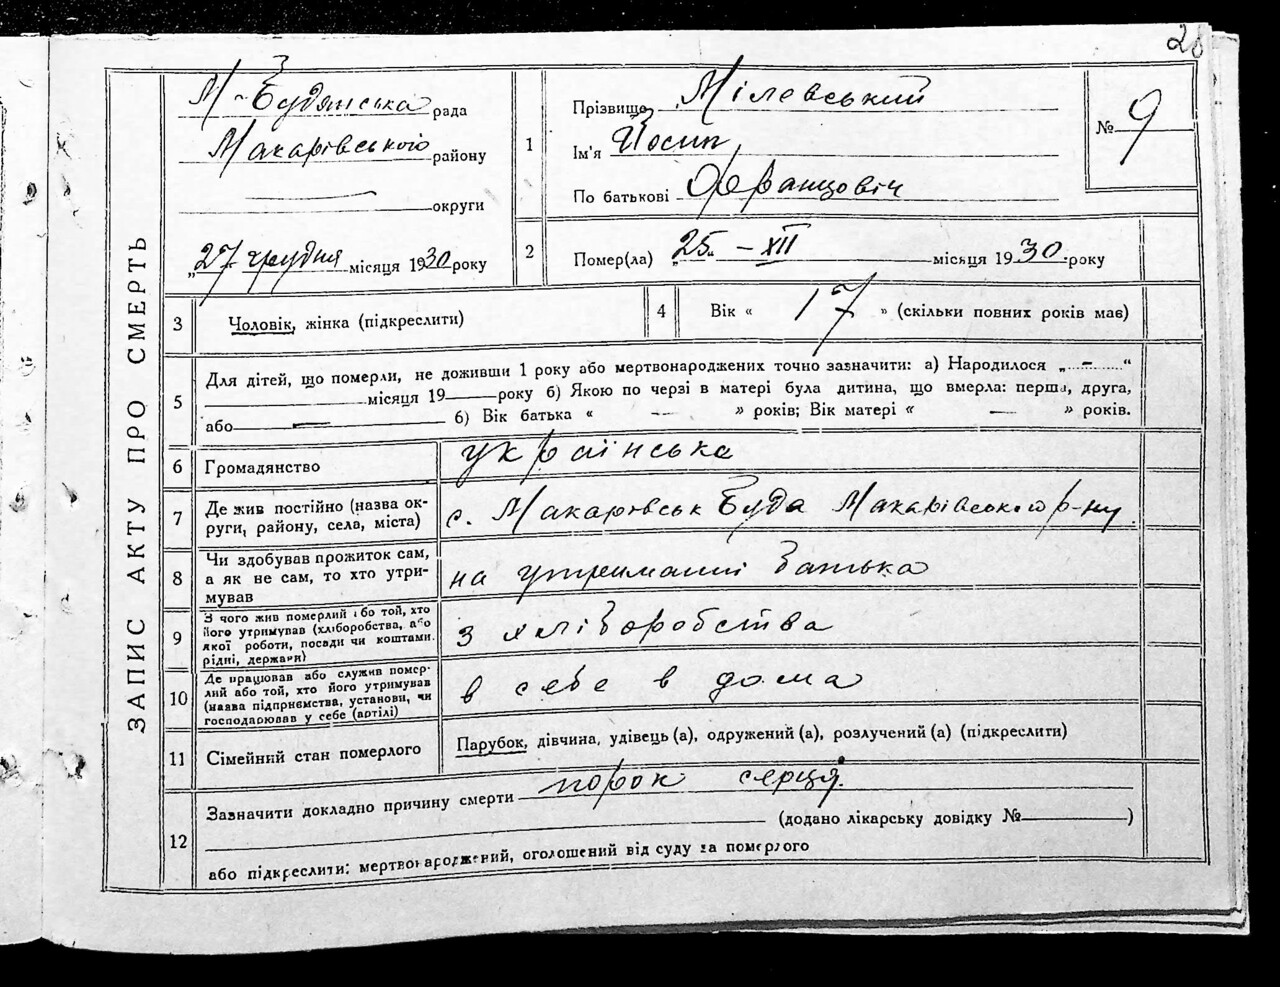 28
ЗАПИС АКТУ ПРО СМЕРТЬ
М-Будянська рада
Макарівського району
округи
„27 грудня місяця 1930 року
1
Прізвище Мілевський
Ім'я Йосип
По батькові Францовіч
№ 9
2
Помер(ла) „25„ – XII місяця 1930 року
3
Чоловік, жінка (підкреслити)
4
Вік « 17 » (скільки повних років має)
5
Для дітей, що померли, не доживши 1 року або мертвонароджених точно зазначити: а) Народилося „ – “
місяця 19 року б) Якою по черзі в матері була дитина, що вмерла: перша, друга,
або — б) Вік батька « — » років; Вік матері « — » років.
6
Громадянство
українська
7
Де жив постійно (назва ок-
руги, району, села, міста)
с. Макаровськ Буда Макарівського р-ну
8
Чи здобував прожиток сам,
а як не сам, то хто утри-
мував
на утриманні батька
9
З чого жив померлий або той, хто
його утримував (хліборобства, або
якої роботи, посади чи коштами
рідні, держави)
з хліборобства
10
Де працював або служив помер-
лий або той, хто його утримував
(назва підприємства, установи, чи
господарював у себе (артілі)
в себе в дома
11
Сімейний стан померлого
Парубок, дівчина, удівець (а), одружений (а), розлучений (а) (підкреслити)
12
Зазначити докладно причину смерти порок серця.
(додано лікарську довідку № )
або підкреслити: мертвонароджений, оголошений від суду за померлого